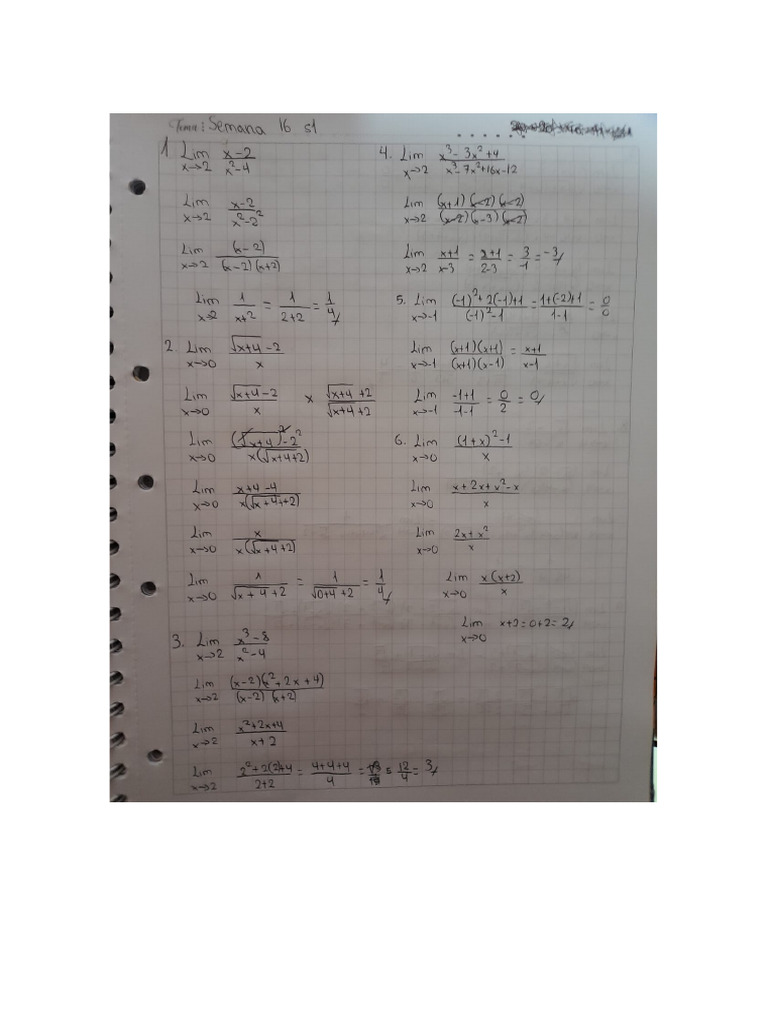 Tema: Semana 16 s1
1. Lim x→2 (x-2)/(x²-4)
Lim x→2 (x-2)/(x²-2²)
Lim x→2 (x-2)/((x-2)(x+2))
Lim x→2 1/(x+2) = 1/(2+2) = 1/4
2. Lim x→0 (√(x+4) -2)/x
Lim x→0 (√(x+4) -2)/x × (√(x+4) +2)/(√(x+4) +2)
Lim x→0 ((√x+4)² -2²)/(x(√x+4+2))
Lim x→0 (x+4-4)/(x(√x+4+2))
Lim x→0 x/(x(√x+4+2))
Lim x→0 1/(√(x+4) +2) = 1/(√(0+4) +2) = 1/4
3. Lim x→2 (x³-8)/(x²-4)
Lim x→2 ((x-2)(x²+2x+4))/((x-2)(x+2))
Lim x→2 (x²+2x+4)/(x+2)
Lim x→2 (2²+2(2)+4)/(2+2) = (4+4+4)/4 = 12/4 = 3
4. Lim x→2 (x³-3x²+4)/(x³-7x²+16x-12)
Lim x→2 ((x+1)(x-2)(x-2))/((x-2)(x-3)(x-2))
Lim x→2 (x+1)/(x-3) = (2+1)/(2-3) = 3/-1 = -3
5. Lim x→-1 ((-1)²+2(-1)+1)/((-1)²-1) = (1+(-2)+1)/(1-1) = 0/0
Lim x→-1 ((x+1)(x+1))/((x+1)(x-1)) = (x+1)/(x-1)
Lim x→-1 (-1+1)/(-1-1) = 0/2 = 0
6. Lim x→0 ((1+x)²-1)/x
Lim x→0 (x+2x+x²-x)/x
Lim x→0 (2x+x²)/x
Lim x→0 (x(x+2))/x
Lim x→0 x+2=0+2=2